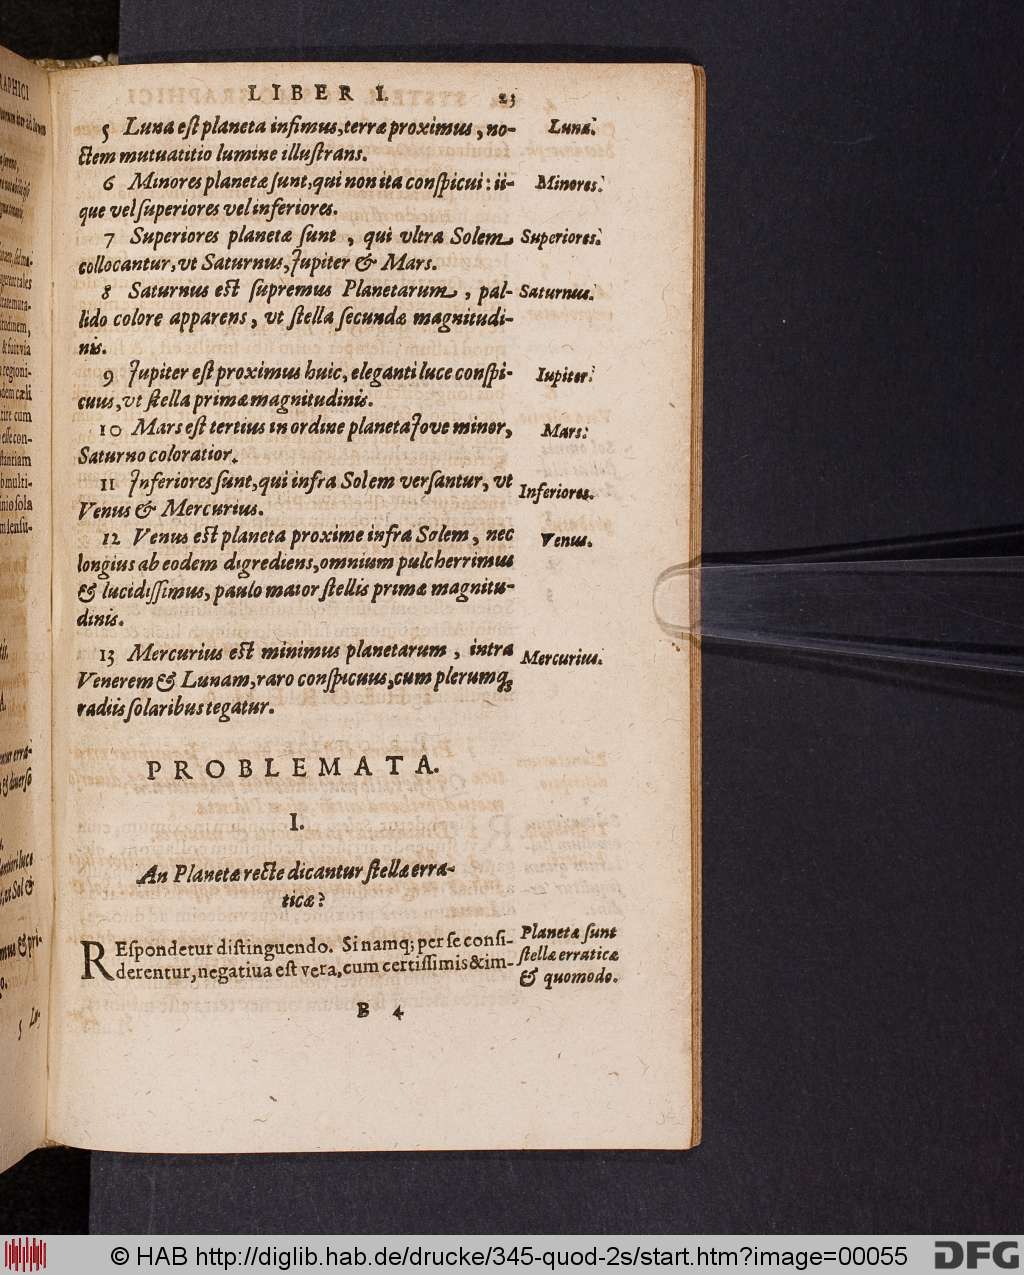 LIBER I. 23
5 Luna est planeta infimus, terræ proximus, no- Luna.
ctem mutuatitio lumine illustrans.
6 Minores planetæ sunt, qui non ita conspicui: ii- Minores.
que vel superiores vel inferiores.
7 Superiores planetæ sunt, qui vltra Solem Superiores.
collocantur, vt Saturnus, Jupiter & Mars.
8 Saturnus est supremus Planetarum, pal- Saturnus.
lido colore apparens, vt stella secundæ magnitudi-
nis.
9 Jupiter est proximus huic, eleganti luce conspi- Iupiter.
cuus, vt stella primæ magnitudinis.
10 Mars est tertius in ordine planeta Jove minor, Mars:
Saturno coloratior.
11 Jnferiores sunt, qui infra Solem versantur, vt Inferiores.
Venus & Mercurius.
12 Venus est planeta proxime infra Solem, nec Venus.
longius ab eodem digrediens, omnium pulcherrimus
& lucidissimus, paulo maior stellis primæ magnitu-
dinis.
13 Mercurius est minimus planetarum, intra Mercurius.
Venerem & Lunam, raro conspicuus, cum plerumq;
radiis solaribus tegatur.
PROBLEMATA.
I.
An Planetæ recte dicantur stellæ erra-
ticæ?
REspondetur distinguendo. Si namq; per se consi- Planetæ sunt
derentur, negatiua est vera, cum certissimis & im- stellæ erraticæ
& quomodo.
B 4
© HAB http://diglib.hab.de/drucke/345-quod-2s/start.htm?image=00055
DFG